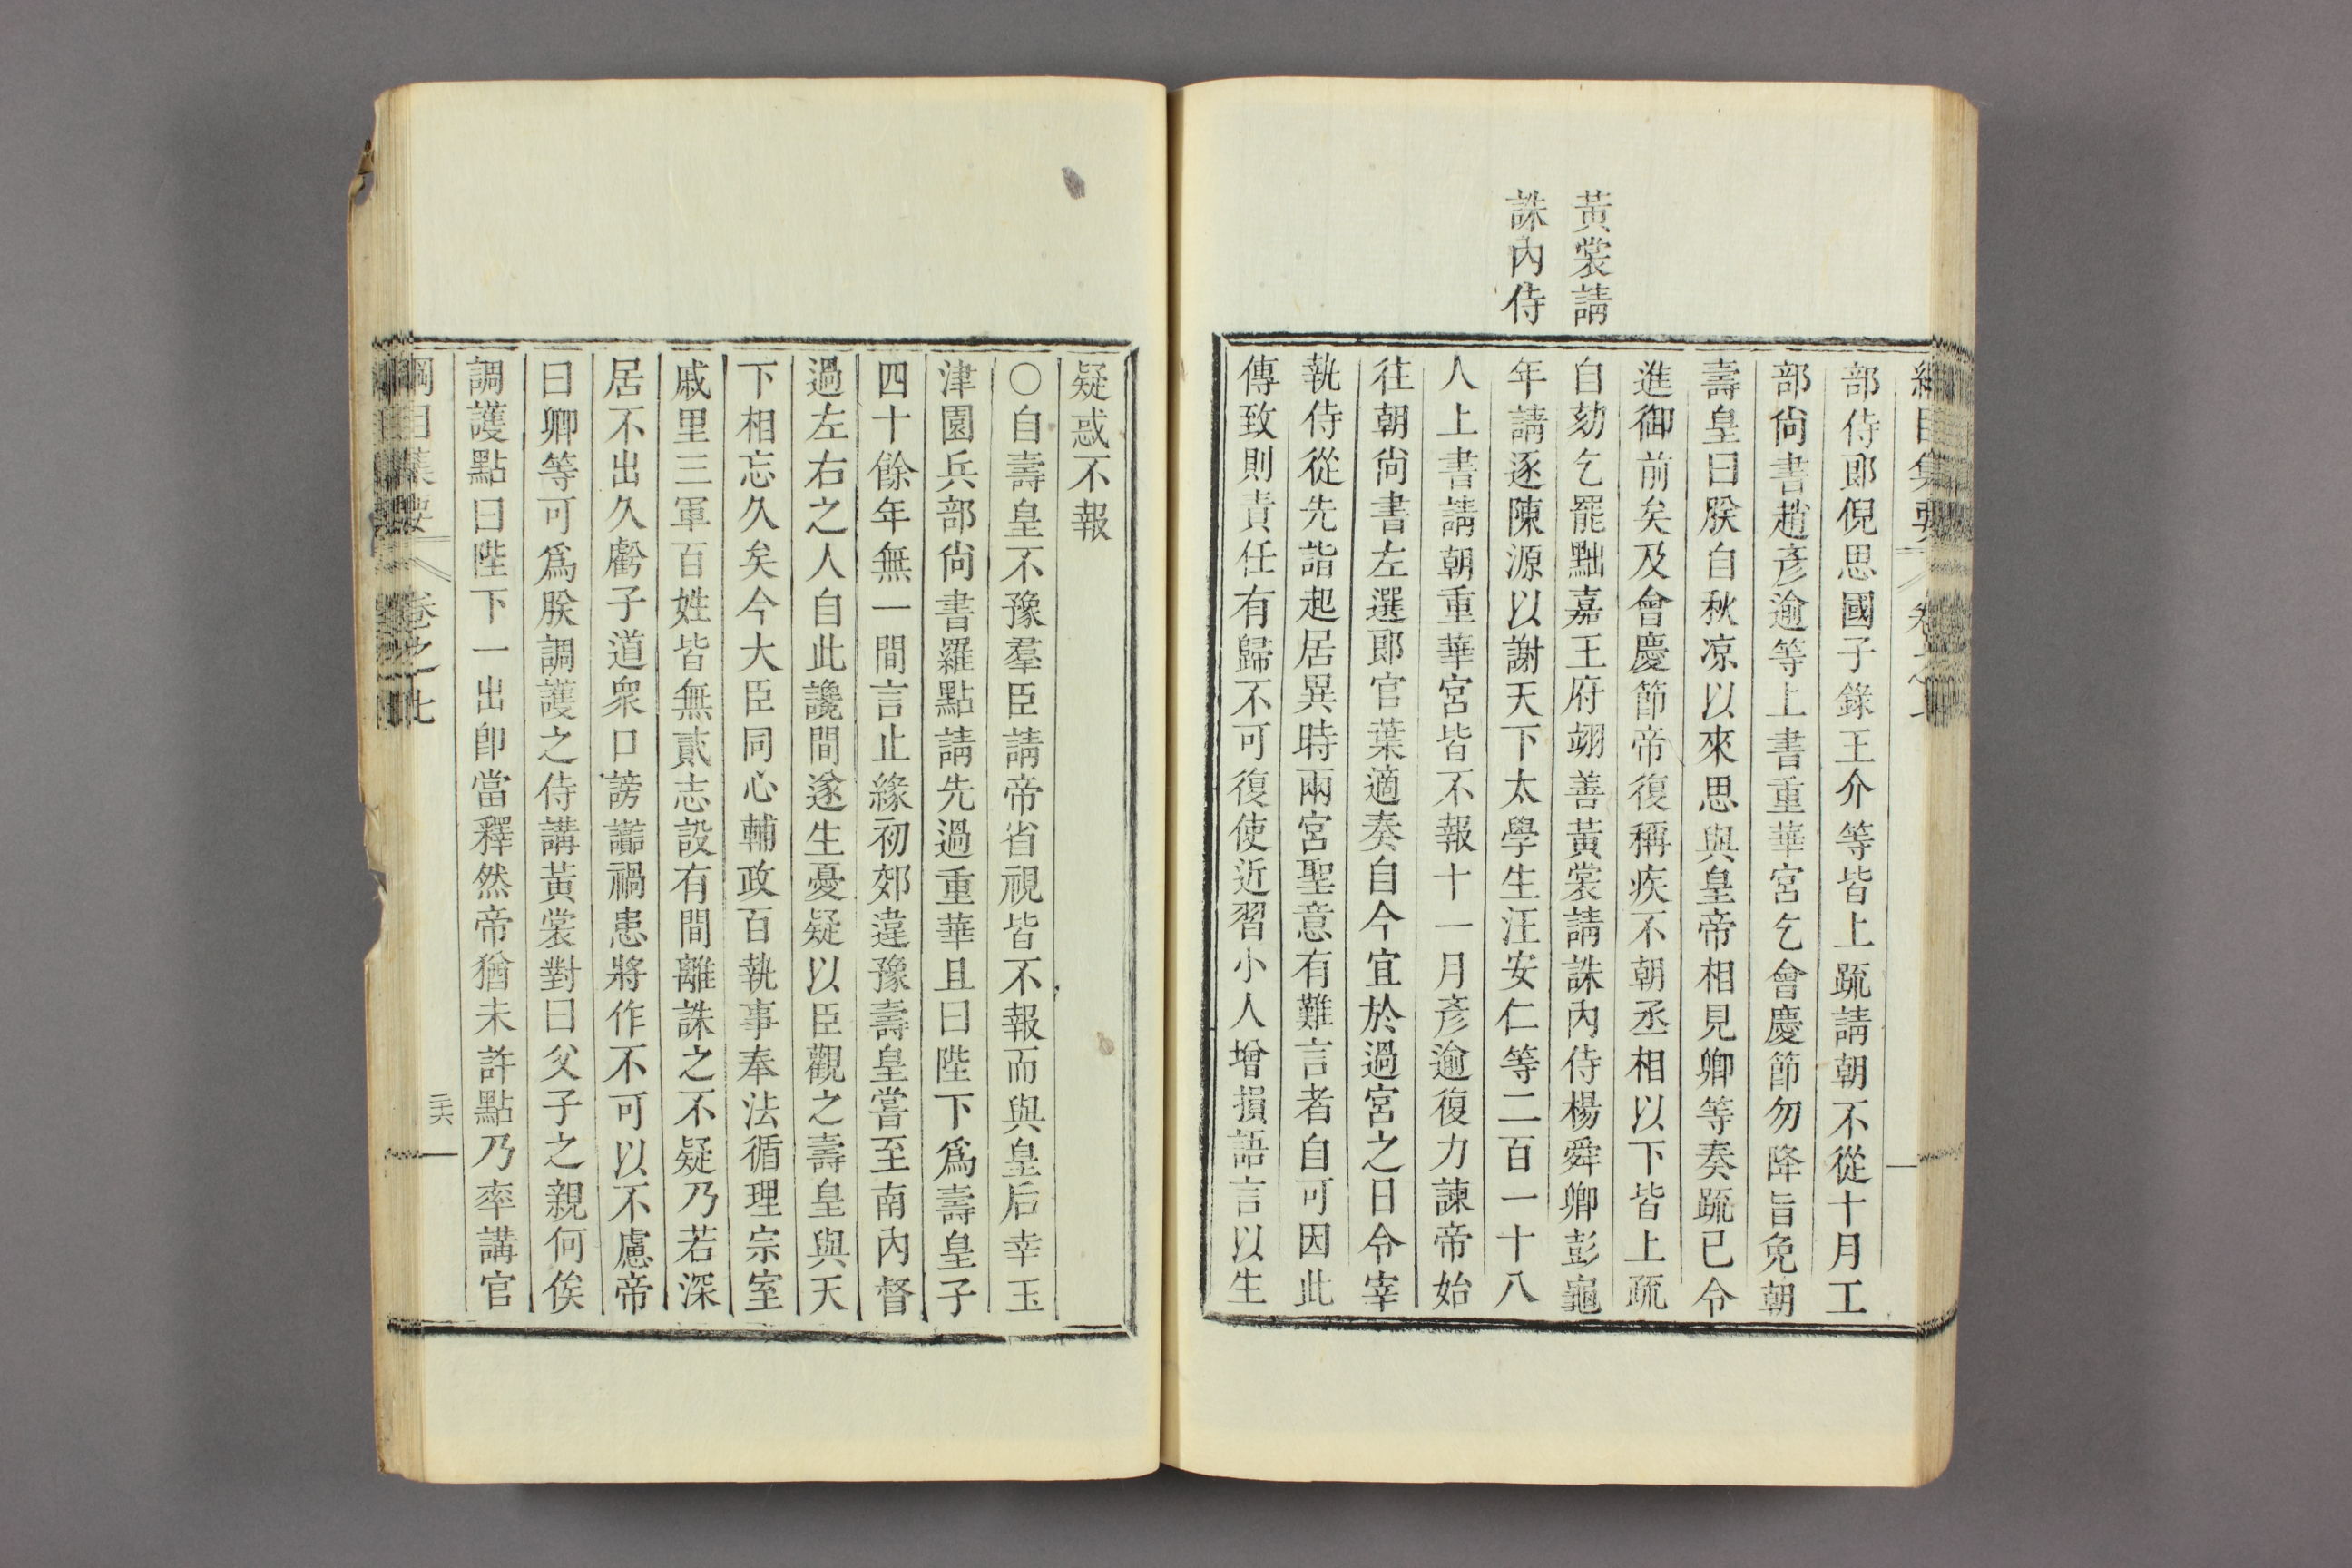 黃裳請
誅內侍
部侍郎倪思國子錄王介等皆上疏請朝不從十月工
部尚書趙彥逾等上書重華宮乞會慶節勿降旨免朝
壽皇曰朕自秋凉以來思與皇帝相見卿等奏疏已令
進御前矣及會慶節帝復稱疾不朝丞相以下皆上疏
自劾乞罷黜嘉王府翊善黃裳請誅內侍楊舜卿彭龜
年請逐陳源以謝天下太學生汪安仁等二百一十八
人上書請朝重華宮皆不報十一月彥逾復力諫帝始
往朝尚書左選郎官葉適奏自今宜於過宮之日令宰
執侍從先詣起居異時兩宮聖意有難言者自可因此
傳致則責任有歸不可復使近習小人增損語言以生
疑惑不報
○自壽皇不豫羣臣請帝省視皆不報而與皇后幸玉
津園兵部尚書羅點請先過重華且曰陛下爲壽皇子
四十餘年無一間言止緣初郊違豫壽皇嘗至南內督
過左右之人自此讒間遂生憂疑以臣觀之壽皇與天
下相忘久矣今大臣同心輔政百執事奉法循理宗室
戚里三軍百姓皆無貳志設有間離誅之不疑乃若深
居不出久虧子道衆口謗讟禍患將作不可以不慮帝
曰卿等可爲朕調護之侍講黃裳對曰父子之親何俟
調護點曰陛下一出卽當釋然帝猶未許點乃率講官
綱目集要 卷之七 三六